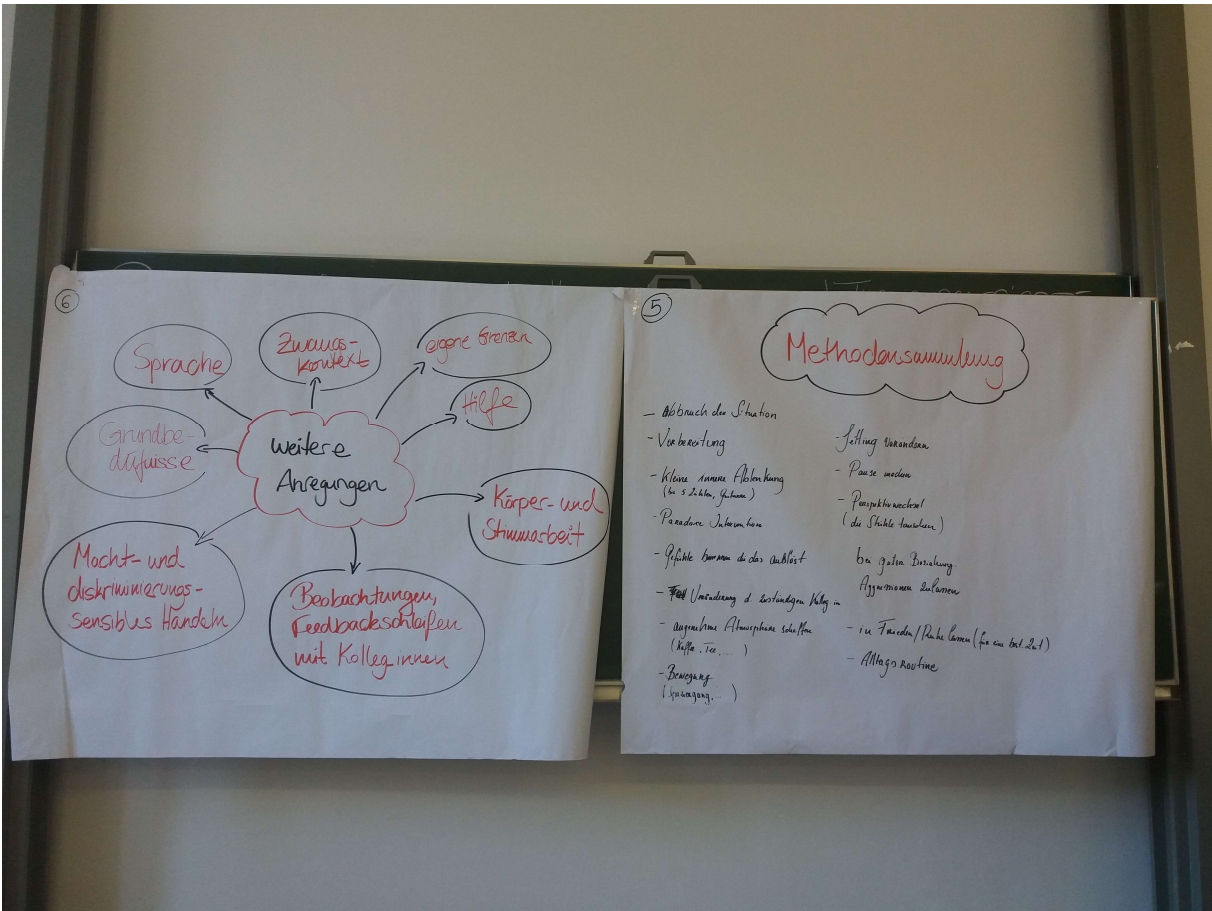 6
Sprache
Zwangs-
kontext
eigene Grenzen
Hilfe
Grundbe-
dürfnisse
weitere
Anregungen
Körper- und
Stimmarbeit
Macht- und
diskriminierungs-
sensibles Handeln
Beobachtungen,
Feedbackschleifen
mit Kolleginnen
5
Methodensammlung
- Abbruch der Situation
- Vorbereitung
- Kleine innere Ablenkung
(bis 5 Zählen,
- Paradoxe Intervention
- Gefühle benennen die das auslöst
- Veränderung d. zuständigen Kolleg in
- angenehme Atmosphäre schaffen
(Kaffe, Tee, ...)
- Bewegung
(Spaziergang, ...)
- Setting verändern
- Pause machen
- Perspektivwechsel
(die Stühle tauschen)
bei guten Beziehung
Aggressionen zulassen
- in Frieden/Ruhe lassen (für eine best. Zeit)
- Alltagsroutine